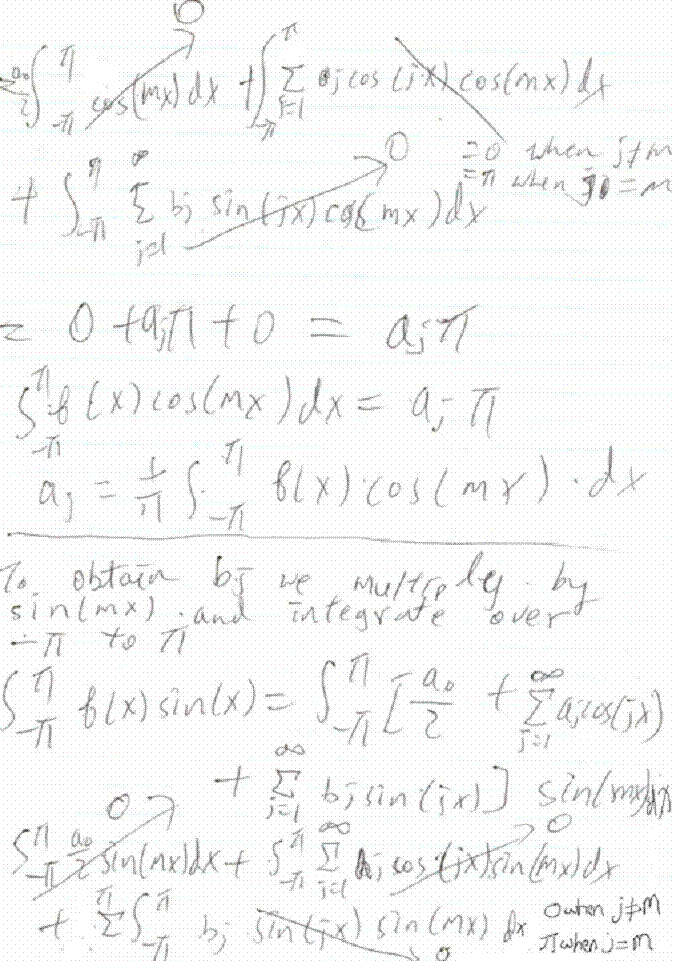 0
a₀/2 ∫_{-π}^{π} cos(mx)dx + ∫_{-π}^{π} Σ_{j=1} aj cos(jx) cos(mx)dx
0 =0 when j≠m
=π when j=m
+ ∫_{-π}^{π} Σ_{j=1}^{∞} bj sin(jx) cos(mx)dx
= 0 + ajπ + 0 = ajπ
∫_{-π}^{π} f(x)cos(mx)dx = aj π
aj = 1/π ∫_{-π}^{π} f(x)·cos(mx)·dx
To obtain bj we multiply by
sin(mx) and integrate over
-π to π
∫_{-π}^{π} f(x)sin(x) = ∫_{-π}^{π} [a₀/2 + Σ_{j=1}^{∞} aj cos(jx)
+ Σ_{j=1}^{∞} bj sin(jx)] sin(mx)dx
0 0
∫_{-π}^{π} a₀/2 sin(mx)dx + ∫_{-π}^{π} Σ_{j=1}^{∞} aj cos(jx)sin(mx)dx
+ Σ ∫_{-π}^{π} bj sin(jx) sin(mx) dx 0 when j≠m
π when j=m